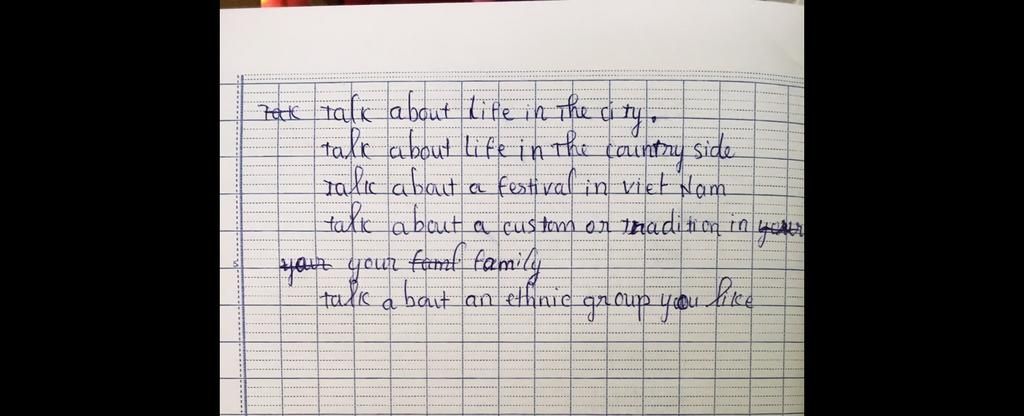 Tak Talk about life in the city.
talk about life in the country side
Talk about a festival in viet Nam
talk about a custom or tradition in your
your your famf family
talk a bout an ethnic group you like